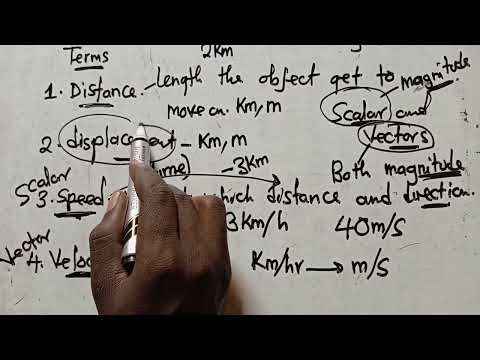 Terms 2Km
1. Distance. – Length the object get to magnitude
move on. Km, m Scalar and
2. displacement – Km, m Vectors
–3Km Both magnitude
Scalar
3. Speed which distance and direction.
3Km/h 40m/s
Vector
4. Km/hr → m/s